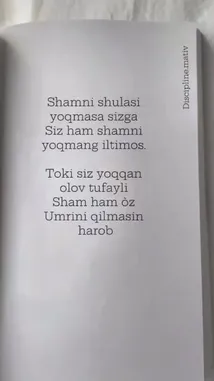 Shamni shulasi
yoqmasa sizga
Siz ham shamni
yoqmang iltimos.
Toki siz yoqqan
olov tufayli
Sham ham òz
Umrini qilmasin
harob
Discipline.mativ